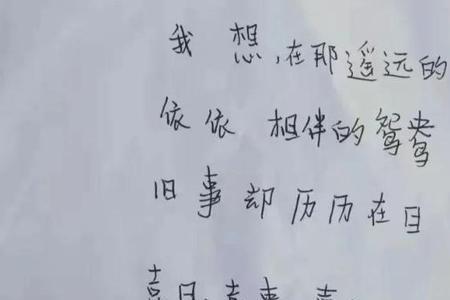 我想,在那遥远的
依依相伴的鸳鸯
旧事却历历在目